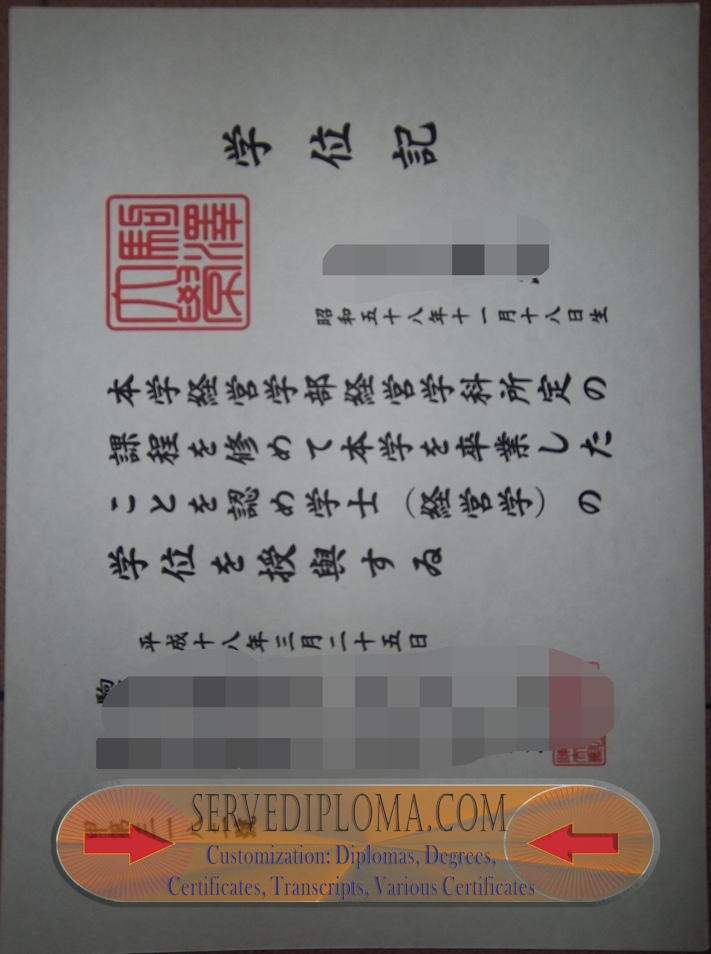 学位記
昭和五十八年十一月十八日生
本学経営学部経営学科所定の
課程を修めて本学を卒業した
ことを認め学士（経営学）の
学位を授與する
平成十八年三月二十五日
駒
SERVEDIPLOMA.COM
Customization: Diplomas, Degrees,
Certificates, Transcripts, Various Certificates